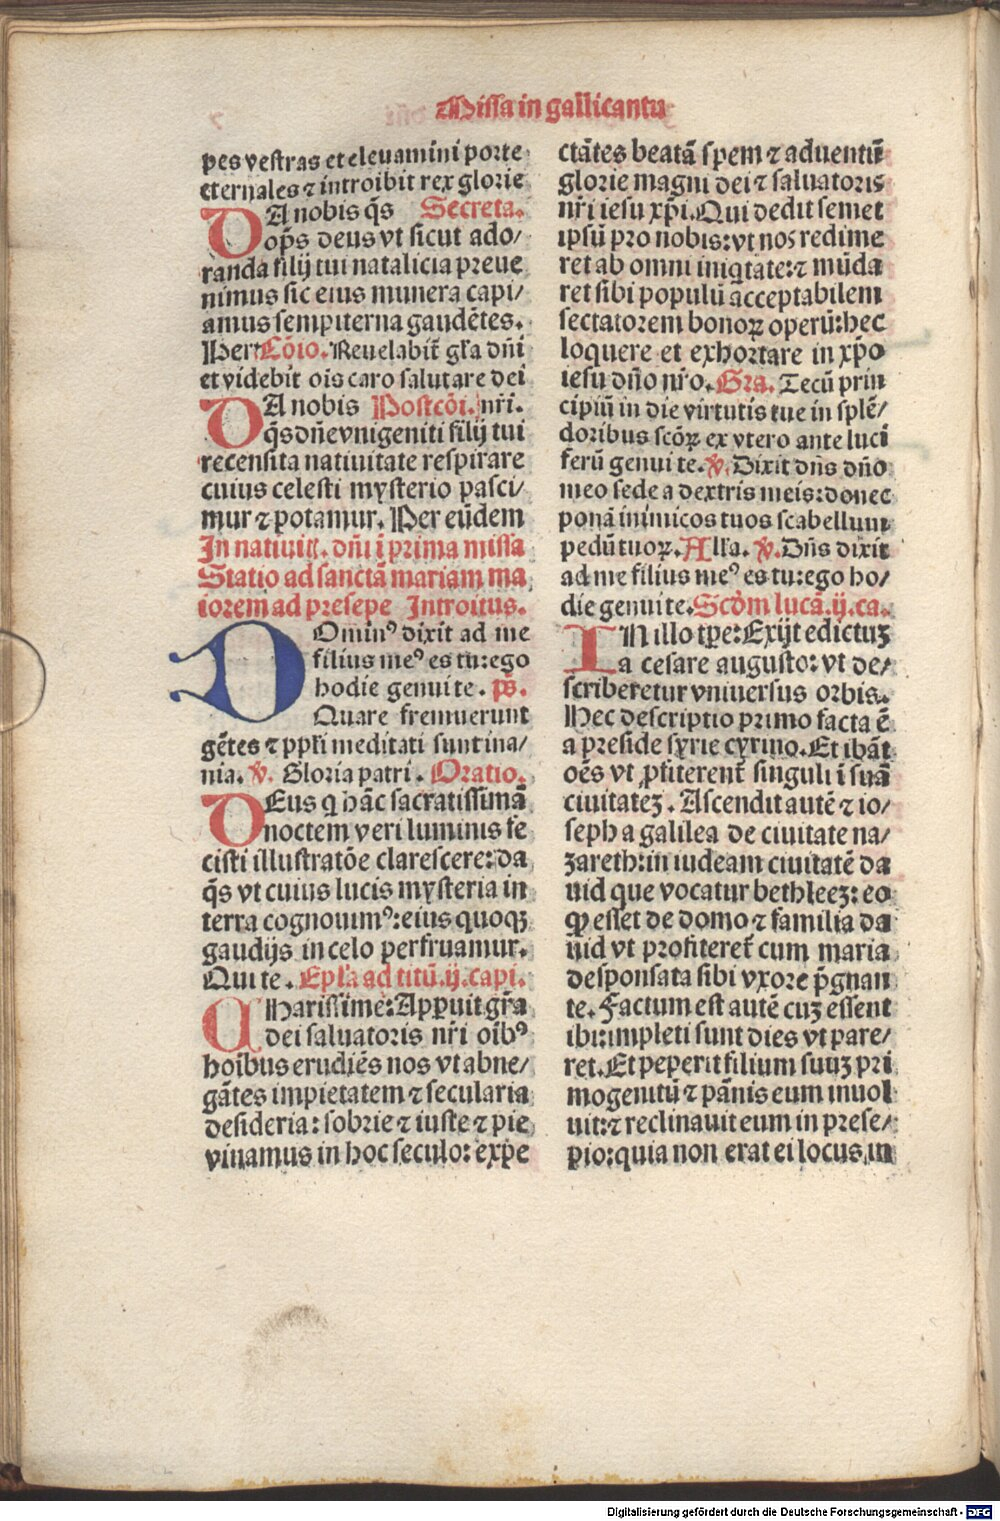 Missa in gallicantu
pes vestras et eleuamini porte
eternales ⁊ introibit rex glorie
DA nobis q̄s Secreta.
op̄s deus vt sicut ado/
randa filij tui natalicia preue
nimus sic eius munera capi/
amus sempiterna gaudētes.
Per Cōio. Reuelabit̄ gl'a dn̄i
et videbit ois caro salutare dei
DA nobis Postcōi. nr̄i.
q̄s dn̄e vnigeniti filij tui
recensita natiuitate respirare
cuius celesti mysterio pasci/
mur ⁊ potamur. Per eūdem
In natiuit. dn̄i ī prima missa
Statio ad sanctā mariam ma
iorem ad presepe Introitus.
DOminꝰ dixit ad me
filius meꝰ es tu: ego
hodie genui te. ps̄.
Quare fremuerunt
gētes ⁊ pplī meditati sunt ina/
nia. v̄. Gloria patri. Oratio.
DEus q̄ hāc sacratissimā
noctem veri luminis fe
cisti illustratōe clarescere: da
q̄s vt cuius lucis mysteria in
terra cognouimꝰ: eius quoqꝫ
gaudijs in celo perfruamur.
Qui te. Epl'a ad titū. ij. capi.
CHarissime: Apparuit gr̄a
dei saluatoris nr̄i oībꝰ
hoībus erudiēs nos vt abne/
gātes impietatem ⁊ secularia
desideria: sobrie ⁊ iuste ⁊ pie
viuamus in hoc seculo: expe
ctātes beatā spem ⁊ aduentū
glorie magni dei ⁊ saluatoris
nr̄i iesu xp̄i. Qui dedit semet
ipsū pro nobis: vt nos redime
ret ab omni iniq̄tate: ⁊ mūda
ret sibi populū acceptabilem
sectatorem bonoꝝ operū: hec
loquere et exhortare in xp̄o
iesu dn̄o nr̄o. Gra. Tecū prin
cipiū in die virtutis tue in splē/
doribus scōꝝ ex vtero ante luci
ferū genui te. v̄. Dixit dn̄s dn̄o
meo sede a dextris meis: donec
ponā inimicos tuos scabellum
pedū tuoꝝ. All'a. v̄. Dn̄s dixit
ad me filius meꝰ es tu: ego ho/
die genui te. Scd̄m lucā. ij. ca.
IN illo tp̄e: Exijt edictuꝫ
a cesare augusto: vt de/
scriberetur vniuersus orbis.
Hec descriptio primo facta ē
a preside syrie cyrino. Et ibāt
oēs vt ꝓfiterent̄ singuli ī suā
ciuitateꝫ. Ascendit autē ⁊ io/
seph a galilea de ciuitate na/
zareth: in iudeam ciuitatē da
uid que vocatur bethleeꝫ: eo
ꝙ esset de domo ⁊ familia da
uid vt profiteret̄ cum maria
desponsata sibi vxore p̄gnan
te. Factum est autē cuꝫ essent
ibi: impleti sunt dies vt pare/
ret. Et peperit filium suuꝫ pri
mogenitū ⁊ pānis eum inuol
uit: ⁊ reclinauit eum in prese/
pio: quia non erat ei locus in
Digitalisierung gefördert durch die Deutsche Forschungsgemeinschaft - DFG